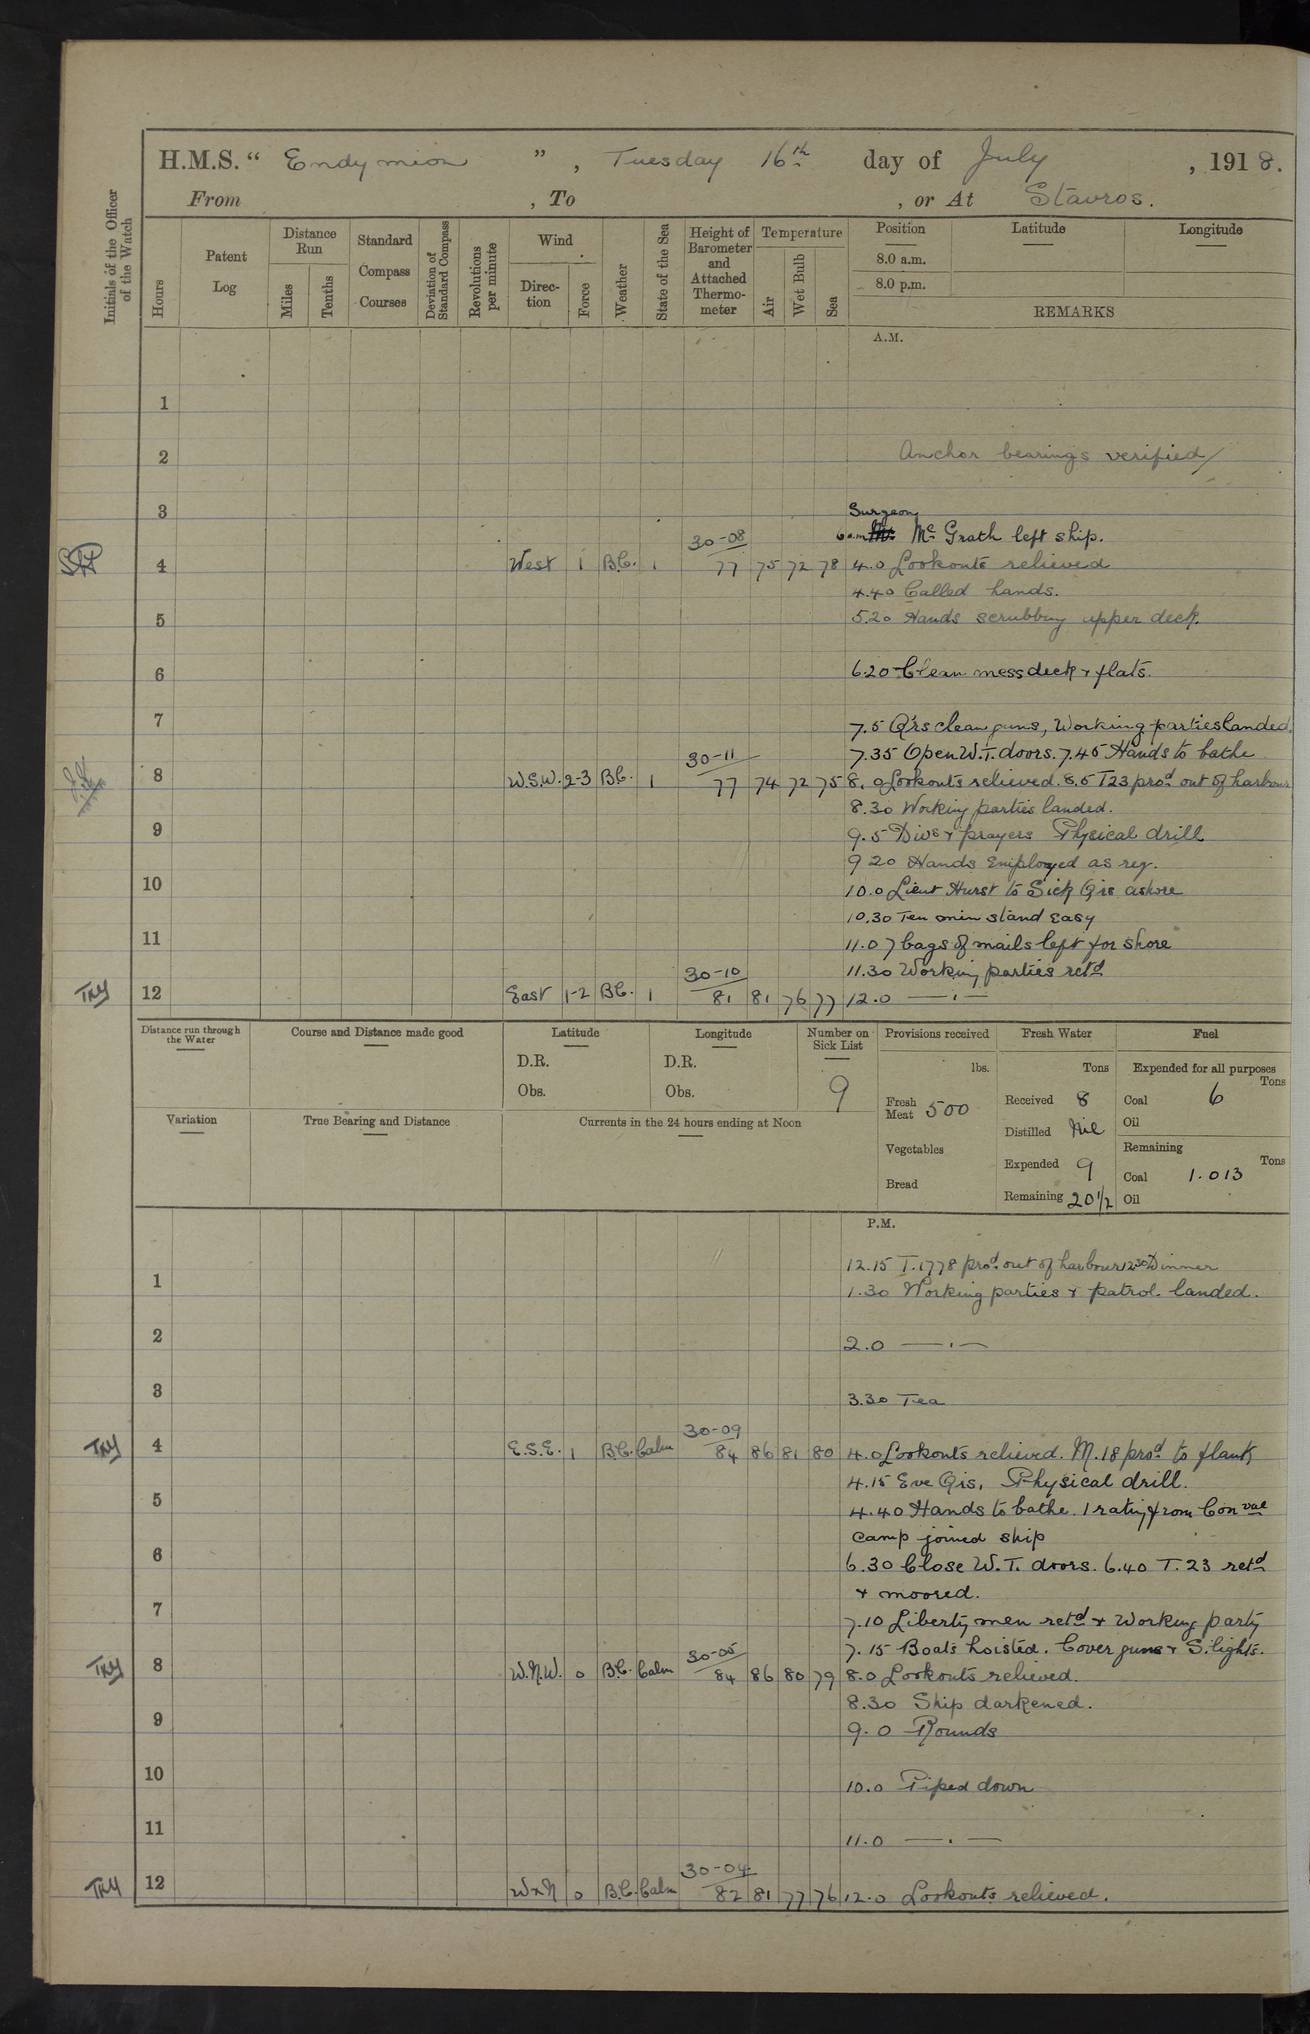 H.M.S. “ Endymion ” , Tuesday 16th day of July , 1918.
From , To , or At Stavros.
Initials of the Officer of the Watch
Hours
Patent Log
Distance Run
Miles
Tenths
Standard Compass Courses
Deviation of Standard Compass
Revolutions per minute
Wind
Direction
Force
Weather
State of the Sea
Height of Barometer and Attached Thermometer
Temperature
Air
Wet Bulb
Sea
Position
8.0 a.m.
8.0 p.m.
Latitude
Longitude
REMARKS
A.M.
1
2 Anchor bearings verified/
3
Surgeon
6 a.m. Mc Grath left ship.
30-08
4 West 1 B.C. 1 77 75 72 78 4.0 Lookouts relieved
4.40 Called hands.
5 5.20 Hands scrubbing upper deck.
6 6.20 Clean messdeck + flats.
7 7.5 Qrs clean guns, Working parties landed.
7.35 Open W.T. doors. 7.45 Hands to bathe
30-11
8 W.S.W. 2-3 B.C. 1 77 74 72 75 8.0 Lookouts relieved. 8.5 T23 procd out of harbour
8.30 Working parties landed.
9 9.5 Divs + prayers Physical drill
9 20 Hands Employed as req.
10 10.0 Lieut Hurst to Sick Qrs ashore
10.30 Ten min stand Easy
11 11.0 7 bags of mails left for shore
30-10
11.30 Working parties retd
TRY 12 East 1-2 B.C. 1 81 81 76 77 12.0 —.—
Distance run through the Water
Course and Distance made good
Latitude
D.R.
Obs.
Longitude
D.R.
Obs.
Number on Sick List
9
Provisions received
lbs.
Fresh Meat 500
Vegetables
Bread
Fresh Water
Tons
Received 8
Distilled Nil
Expended 9
Remaining 20 1/2
Fuel
Expended for all purposes
Tons
Coal 6
Oil
Remaining
Tons
Coal 1.013
Oil
Variation
True Bearing and Distance
Currents in the 24 hours ending at Noon
P.M.
12.15 T.1778 procd out of harbour 12.30 Dinner
1 1.30 Working parties + patrol landed.
2 2.0 —.—
3 3.30 Tea
30-09
TRY 4 E.S.E. 1 B.C. Calm 84 86 81 80 4.0 Lookouts relieved. M.18 procd to flank
4.15 Eve Qrs, Physical drill.
5 4.40 Hands to bathe. 1 rating from Conval
camp joined ship
6 6.30 Close W.T. doors. 6.40 T.23 retd
+ moored.
7 7.10 Liberty men retd + Working party
7.15 Boats hoisted. Cover guns + S.lights.
30-05
TRY 8 W.N.W. 0 B.C. Calm 84 86 80 79 8.0 Lookouts relieved.
8.30 Ship darkened.
9 9.0 Rounds
10 10.0 Piped down
11 11.0 —.—
30-04
TRY 12 WxN 0 B.C. Calm 82 81 77 76 12.0 Lookouts relieved.